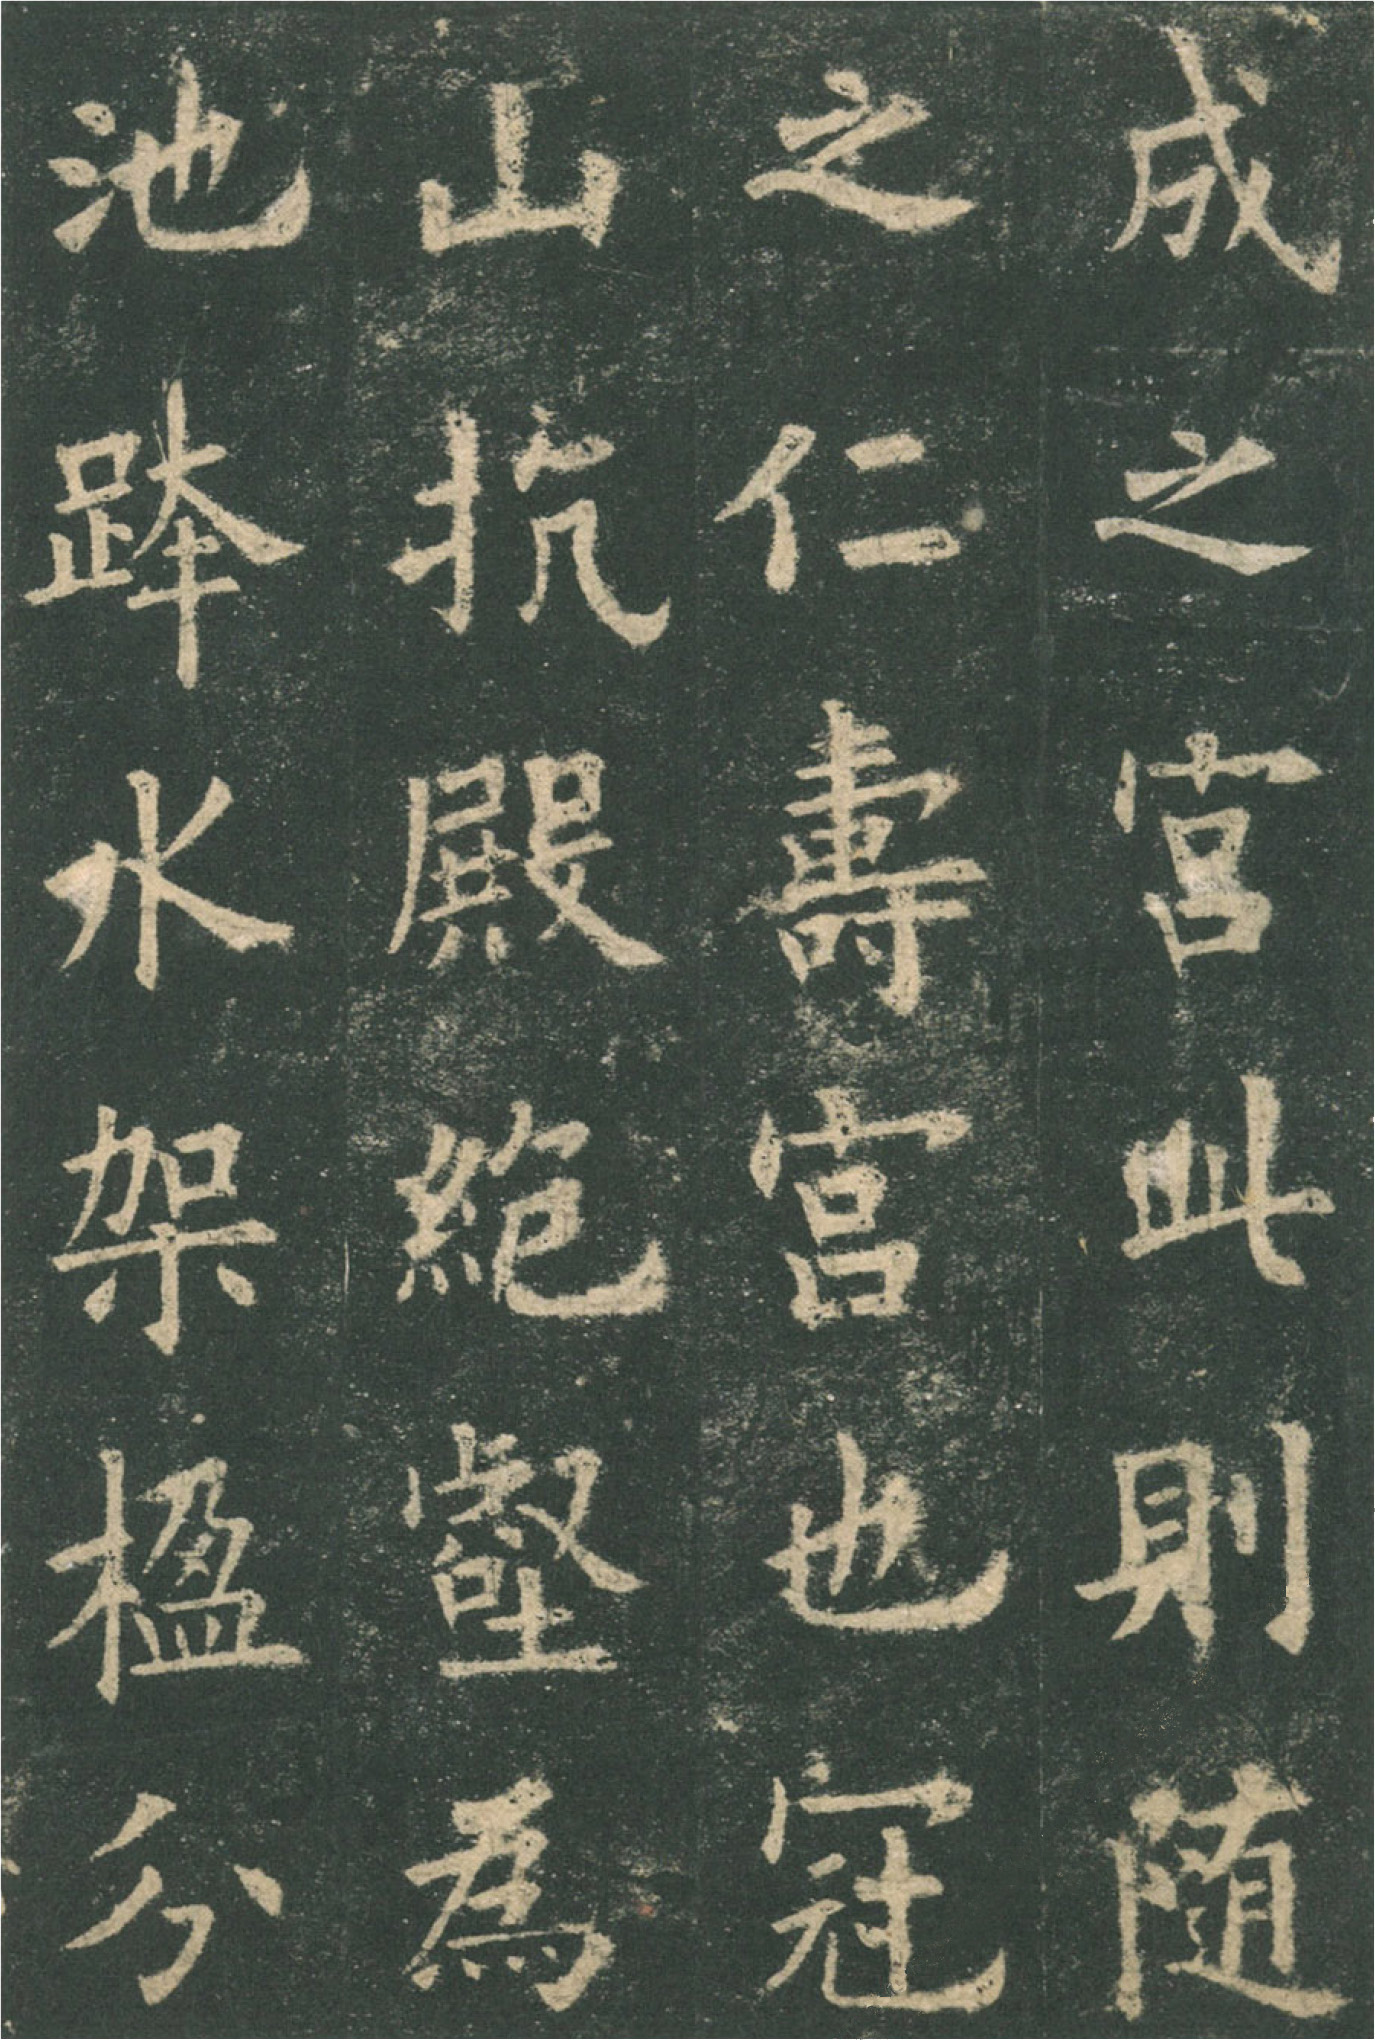 成之宫此則随
之仁壽宫也冠
山抗殿絶壑為
池跨水架楹分